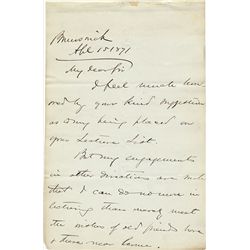 Brunswick
Apl 15 1871
My dear Sir
I feel much hon
ored by your kind suggestion
as to my being placed on
your Lecture List.
But my engagements
in other directions are such
that I can do no more in
lecturing than merely meet
the wishes of old friends here
& there near home.